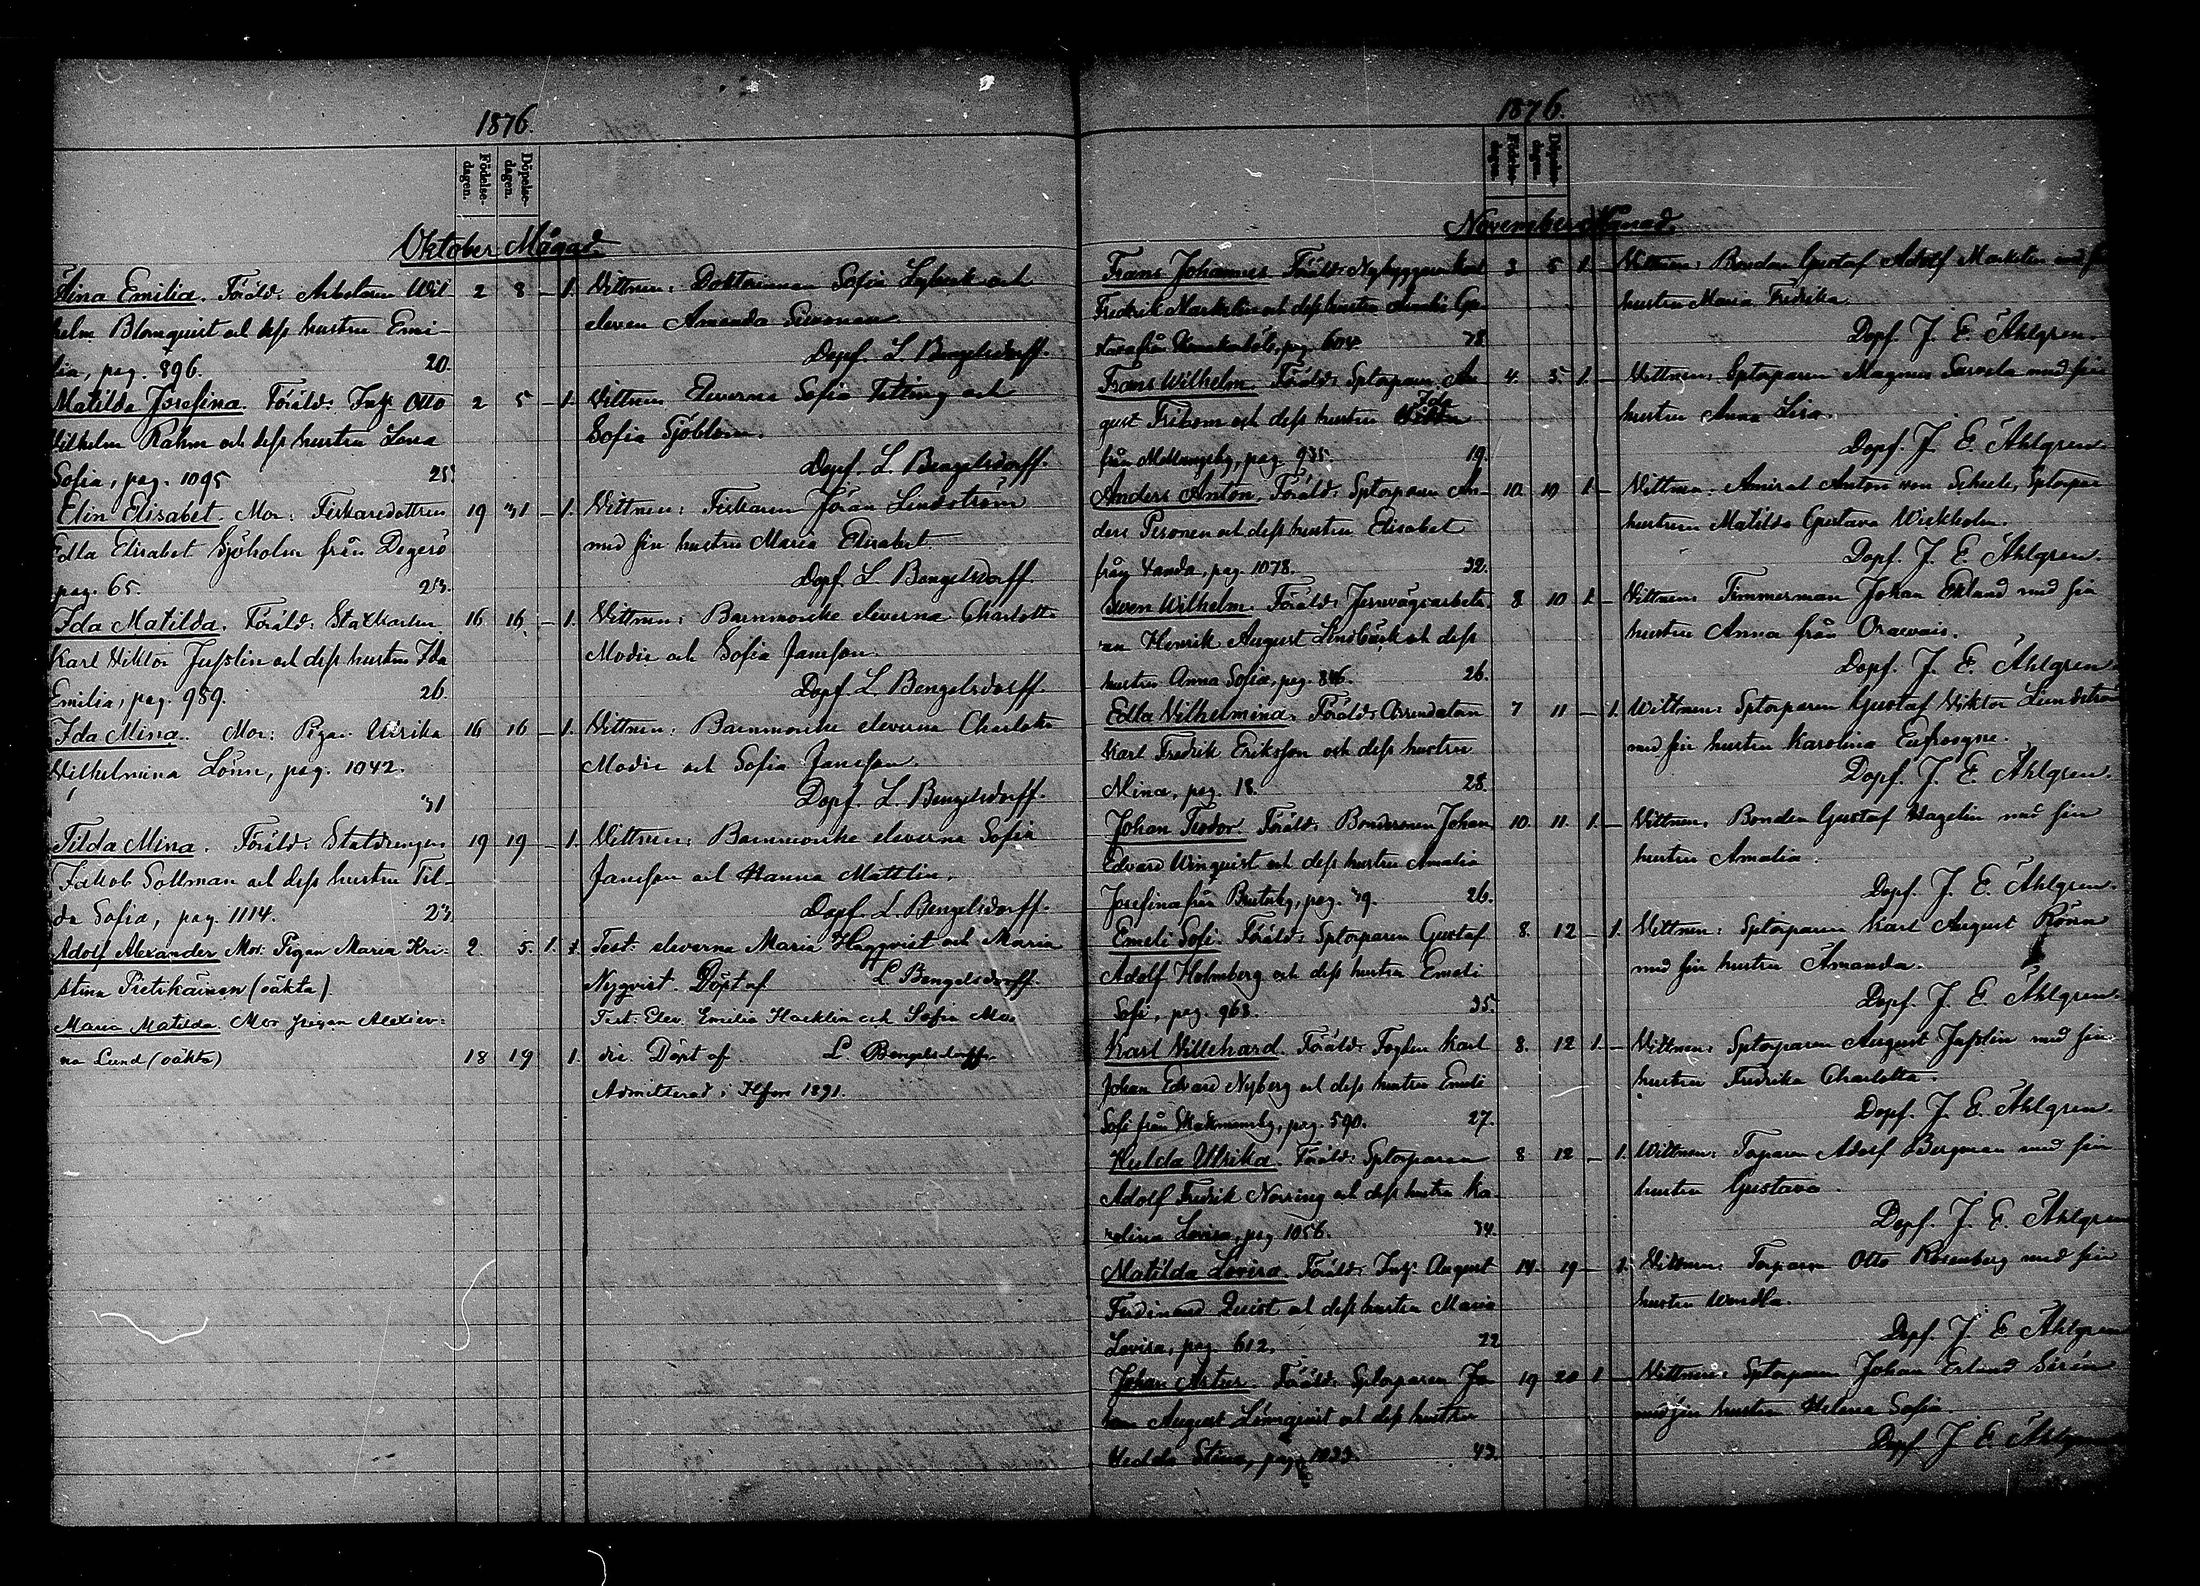 1876.
Födelse-
dagen.
Döpelse-
dagen.
Oktober Månad.
Aina Emilia. Föräld: Arbetaren Wil- 2 8 – 1. Vittnen: Doktorinnan Sofia Lybeck och
helm Blomquist och dess hustru Emi- eleven Amanda
lia, pag. 896. 20. Dopf. L Bengelsdorff.
Matilda Josefina. Föräld: Inh. Otto 2 5 – 1. Vittnen Eleverna Sofia Telling och
Vilhelm Råhm och dess hustru Lova Sofia Sjöblom.
Sofia, pag. 1095 25. Dopf. L. Bengelsdorff.
Elin Elisabet. Mor: Fiskaredottren 19 31 – 1. Vittnen: Fiskaren Jöran Lindström
Edla Elisabet Sjöholm från Degerö med sin hustru Maria Elisabet.
pag. 65. 23. Dopf. L Bengelsdorff.
Ida Matilda. Föräld: Statkarlen 16 16 – 1. Vittnen: Barnmorske eleverna Charlotta
Karl Viktor Jusslin och dess hustru Ida Modie och Sofia Jansson.
Emilia, pag. 989. 26. Dopf. L Bengelsdorff.
Ida Mina. Mor: Pigan Ulrika 16 16 – 1. Vittnen: Barnmorske eleverna Charlotta
Wilhelmina Lönn, pag. 1042. Modie och Sofia Jansson.
31 Dopf. L. Bengelsdorff.
Tilda Mina. Föräld: Statdrengen 19 19 – 1. Vittnen: Barnmorske eleverna Sofia
Jakob Sollman och dess hustru Til- Jansson och Hanna Mattlin.
da Sofia, pag. 1114. 23 Dopf. L Bengelsdorff.
Adolf Alexander Mor. Pigan Maria Kri- 2. 5. 1. 1. Test: eleverna Maria Haggvist och Maria
stina Pietikäinen (oäkta). Nyqvist. Döpt af L Bengelsdorff.
Maria Matilda Mor pigan Alexiev- Test: Elev. Emilia Hacklin och Sofia Mo-
na Lund (oäkta) 18 19 1. die. Döpt af L Bengelsdorff.
Admitterad i Hfors 1891.
1876.
Födelse-
dagen.
Döpelse-
dagen.
November Månad.
Frans Johannes Föräld: Nybyggaren Karl 3 5 1. – Vittnen: Bonden Gustaf Adolf Markelin med sin
Fredrik Markelin och dess hustru Amali Gu- hustru Maria Fredrika.
stava från pag. 604. 28 Dopf. J. E. Åhlgren.
Frans Wilhelm. Föräld: Sptorparen Au- 4. 5. 1. – Vittnen: Sptorparen Magnus med sin
gust och dess hustru Ida hustru Anna Lisa.
från Mellungsby, pag. 935. 19. Dopf. J. E. Åhlgren.
Anders Anton. Föräld: Sptorparen An- 10. 10 1. – Vittnen: Amiral Anton von Schele, Sptorpar
ders Personen och dess hustru Elisabet hustrun Matilda Gustava Wickholm.
från Vanda, pag. 1078. 32. Dopf. J. E. Åhlgren.
Swen Wilhelm. Föräld: Jernvägsarbeta- 8 10 1. – Vittnen: Timmerman Johan Eklund med sin
ren Henrik August Lindbäck och dess hustru Anna från Oravais.
hustru Anna Sofia, pag. 846. 26. Dopf. J. E. Åhlgren
Edla Vilhelmina. Föräld: Arrendatorn 7 11 – 1. Wittnen: Sptorparen Gustaf Viktor Lundström
Karl Fredrik Eriksson och dess hustru med sin hustru Karolina Eufrosyne.
Mina, pag. 18. 28. Dopf. J. E. Åhlgren.
Johan Teodor. Föräld: Bondesonen Johan 10. 11. 1. – Vittnen: Bonden Gustaf Hagelin med sin
Edvard Winquist och dess hustru Amalia hustru Amalia.
Josefina från pag. 79. 26. Dopf. J. E. Åhlgren.
Emeli Sofi. Föräld: Sptorparen Gustaf 8. 12 – 1. Vittnen: Sptorparen Karl August Rönn
Adolf Holmberg och dess hustru Emeli med sin hustru Amanda.
Sofi, pag. 963. 35. Dopf. J. E. Åhlgren.
Karl Villehard. Föräld: Fogden Karl 8. 12 1. – Vittnen: Sptorparen August Jusslin med sin
Johan Edvard Nyberg och dess hustru Emeli hustru Fredrika Charlotta.
Sofi från pag. 590. 27. Dopf. J. E. Åhlgren.
Hulda Ulrika. Föräld: Sptorparen 8 12 – 1. Wittnen: Torparen Adolf Bergman med sin
Adolf Fredrik Norring och dess hustru Ka- hustru Gustava.
rolina Lovisa, pag. 1056. 34. Dopf. J. E. Åhlgren
Matilda Lovisa. Föräld: Inh. August 14. 19 – 1. Vittnen: Torparen Otto Rosenberg med sin
Ferdinand Quist och dess hustru Maria hustru Wendla.
Lovisa, pag. 612. 22 Dopf. J. E. Åhlgren
Johan Artur. Föräld: Sptorparen Jo- 19 20 1 – Vittnen: Sptorparen Johan Erland Sirén
han August Lönnquist och dess hustru med sin hustru Helena Sofia.
Hedda Stina, pag. 1033. 43. Dopf. J. E. Åhlgren